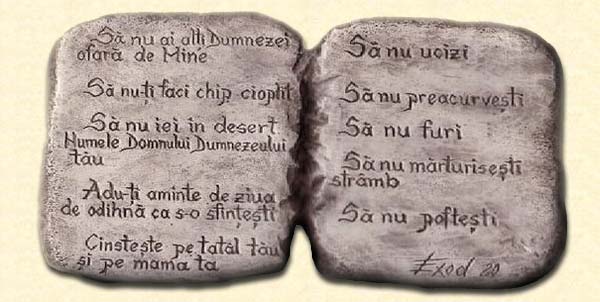 Să nu ai alți Dumnezei
afară de Mine
Să nu-ți faci chip cioplit
Să nu iei în desert
Numele Domnului Dumnezeului
tău
Adu-ți aminte de ziua
de odihnă ca s-o sfințești
Cinstește pe tatăl tău
și pe mama ta
Să nu ucizi
Să nu preacurvești
Să nu furi
Să nu mărturisești
strâmb
Să nu poftești
Exod 20